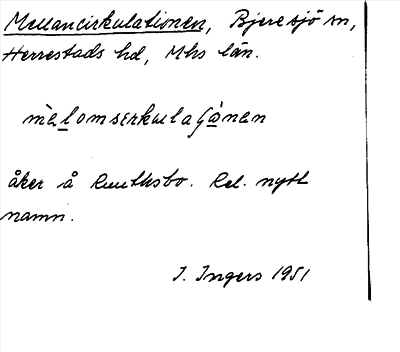 Mellancirkulationen, Bjeresjö sn,
Herrestads hd, Mhs län.
mèlomsɛrkulaʃónən
åker å Ruuthsbo. Rel. nytt
namn.
I. Ingers 1951